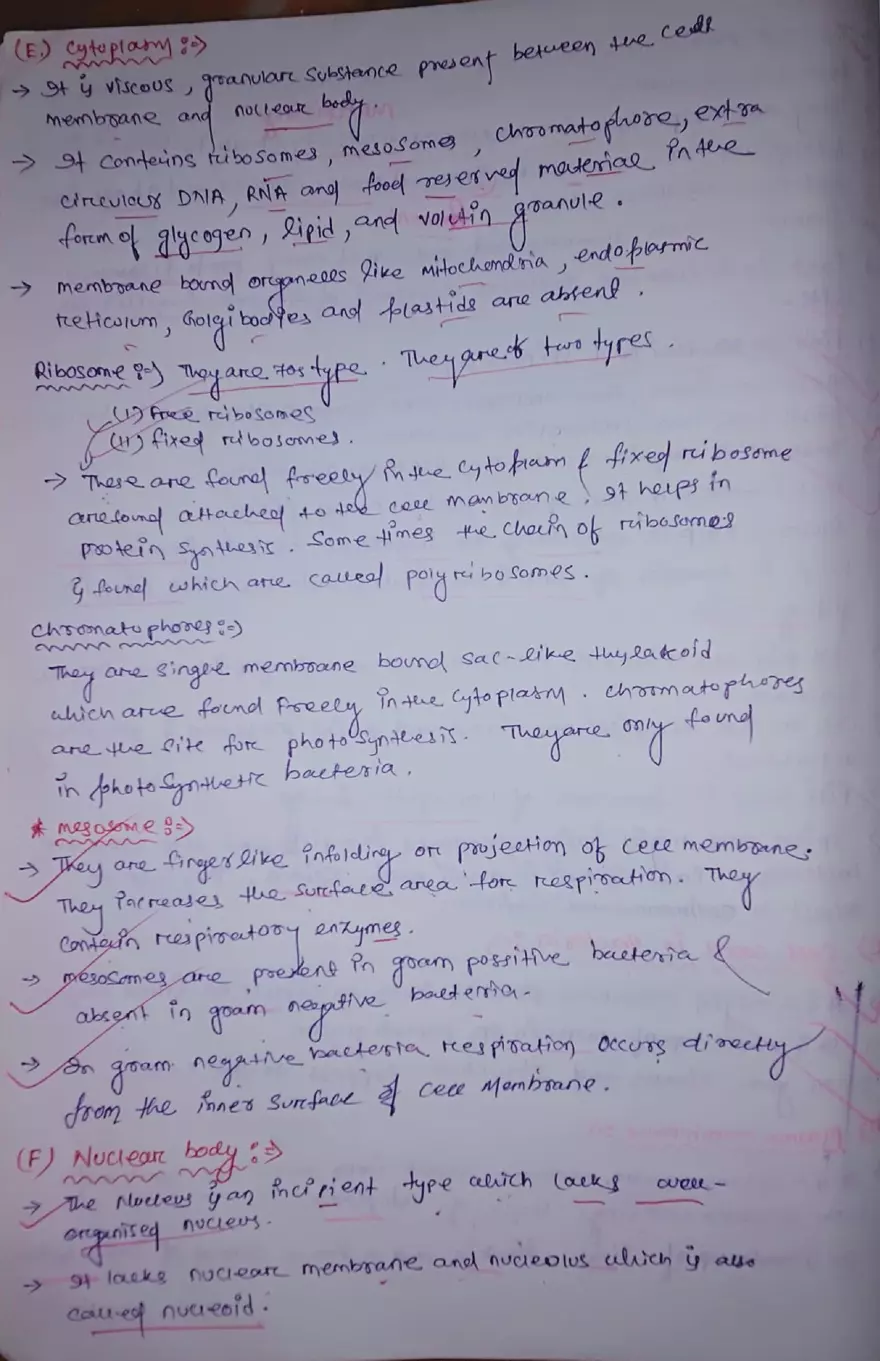 (E.) Cytoplasm :⇒
→ It is viscous, granular substance present between the cell
membrane and nuclear body.
→ It contains ribosomes, mesosomes, chromatophore, extra
circular DNA, RNA and food reserved material in the
form of glycogen, lipid, and volutin granule.
→ membrane bound organells like mitochondria, endoplasmic
reticulum, Golgibodyes and plastids are absent.
Ribosome :⇒) They are 70s type. They are of two types.
(I) Free ribosomes
(II) fixed ribosomes.
→ These are found freely in the cytoplasm & fixed ribosome
are found attached to the cell manbrane. It helps in
protein synthesis. Some times the chain of ribosomes
is found which are called polyribosomes.
Chromatophores :⇒)
They are single membrane bound sac-like thylakoid
which are found freely in the cytoplasm. chromatophores
are the site for photosynthesis. They are only found
in photosynthetic bacteria.
* mesosome :⇒)
→ They are finger like infolding or projection of cell membrane.
They increases the surface area for respiration. They
contain respiratory enzymes.
→ mesosomes are present in gram possitive bacteria &
absent in gram negative bacteria.
→ In gram negative bacteria respiration occurs directly
from the inner surface of cell Membrane.
(F) Nuclear body :⇒
→ The Nucleus is an incipient type which lacks well-
organised nucleus.
→ It lacks nuclear membrane and nucleolus which is also
called nucleoid.